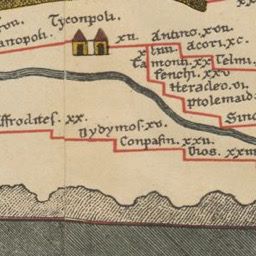 Tyconpoli.
anopoli.
xii.
Antino. xvii.
Acori. xc.
Tamonti. xx
Telmi.
fenchi. xxv
Heracleo. vi.
ptolemaid
ffrodites. xx.
Dydymos. xv.
Conpasin. xxii.
Dios. xxiii